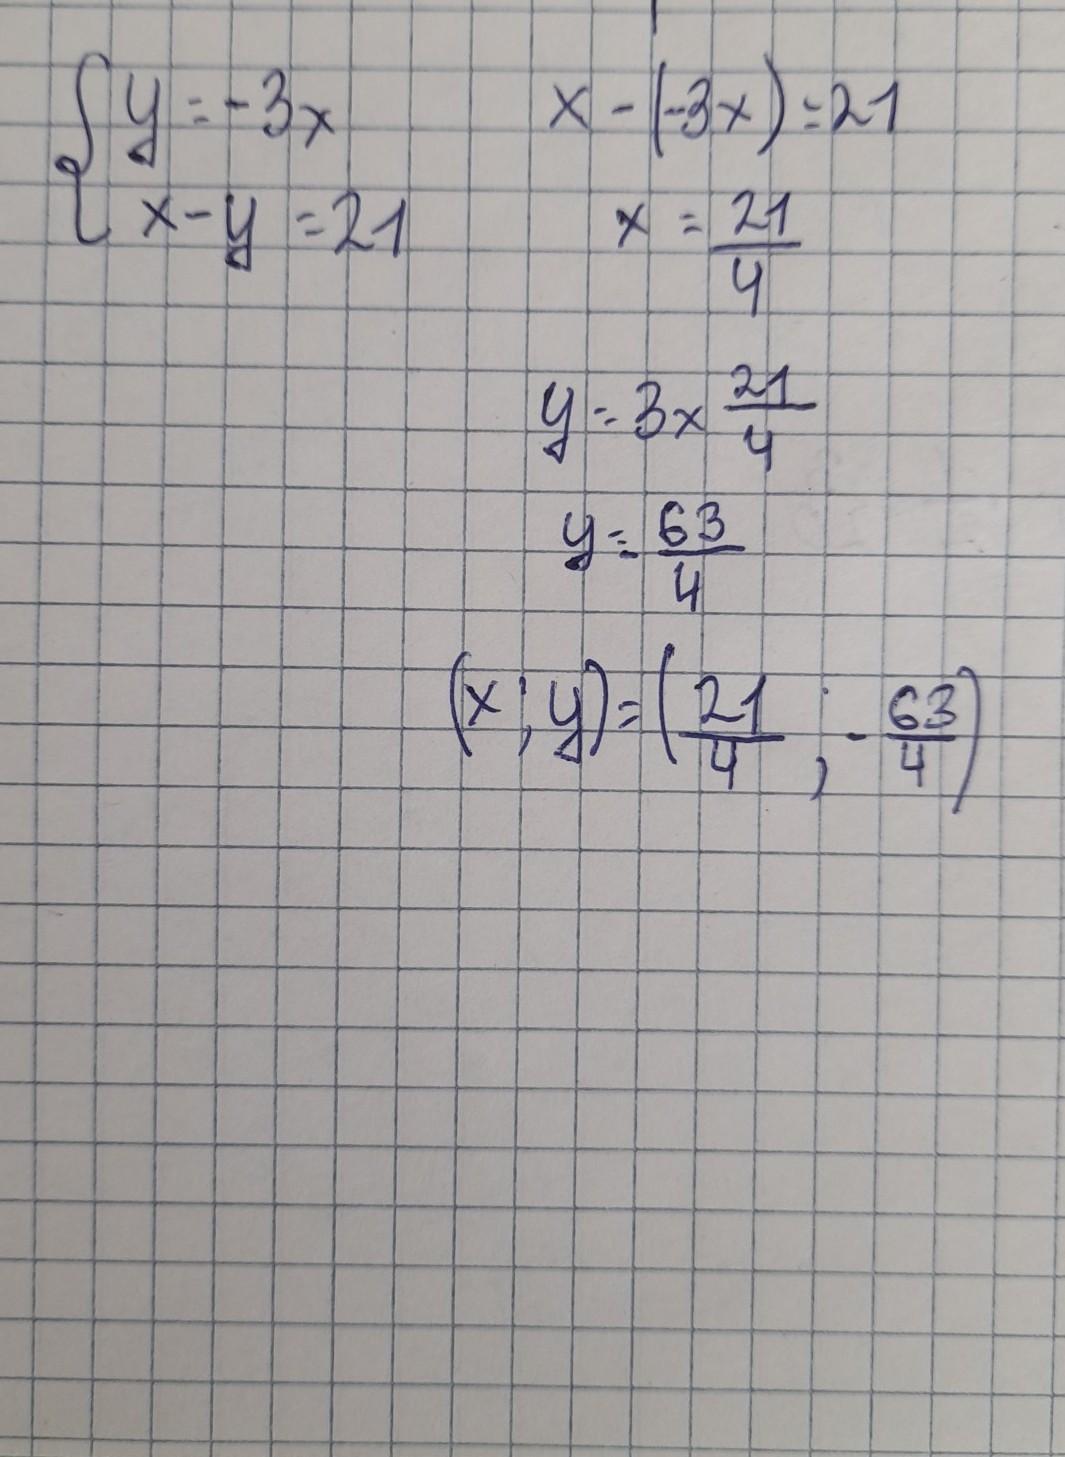 { y = -3x
x - y = 21
x - (-3x) = 21
x = 21/4
y = 3x 21/4
y = 63/4
(x ; y) = (21/4 ; - 63/4)